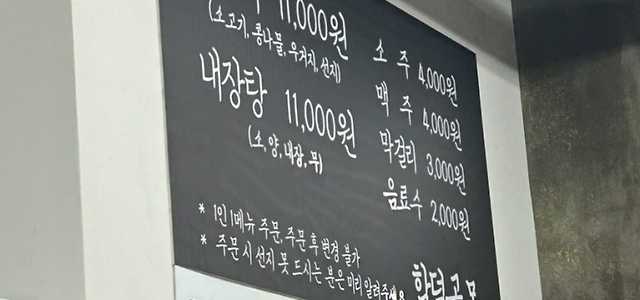 11,000원
(소고기, 콩나물, 우거지, 선지)
내장탕 11,000원
(소, 양, 내장, 무)
소주 4,000원
맥주 4,000원
막걸리 3,000원
음료수 2,000원
* 1인 1메뉴 주문, 주문 후 변경 불가
* 주문 시 선지 못 드시는 분은 미리 알려주세요